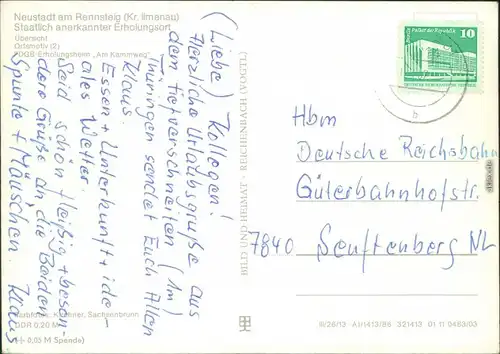 Neustadt am Rennsteig (Kr. Ilmenau)
Staatlich anerkannter Erholungsort
Übersicht
Ortsmotiv (2)
FDGB-Erholungsheim „Am Kammweg"
(Liebe) Kollegen!
Herzliche Urlaubsgrüße aus
dem tiefverschneiten (1m)
Thüringen sendet Euch Allen
Klaus.
Essen + Unterkunft + ide-
ales Wetter.
Seid schön fleißig + beson-
dere Grüße an die Beiden
Spunte + Mäuschen. Klaus
Kirchner, Sachsenbrunn
DDR 0,20 M
(+ 0,05 M Spende)
BILD UND HEIMAT · REICHENBACH (VOGTL)
III/26/13 A1/1413/86 321413 01 11 0463/03
10
DDR
b
Hbm
Deutsche Reichsbahn
Güterbahnhofstr.
7840 Senftenberg NL